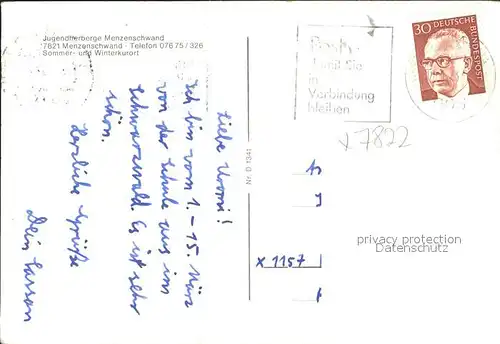 Jugendherberge Menzenschwand
7821 Menzenschwand - Telefon 076 75 / 326
Sommer- und Winterkurort
Liebe
Ich bin vom 1. - 15. März
von der Schule aus im
Schwarzwald. Es ist sehr
schön.
Herzliche Grüße
Dein Carsten
Nr. D 1341
damit Sie
in
Verbindung
bleiben
30 DEUTSCHE BUNDESPOST
x 7822
privacy protection
Datenschutz
x 1157